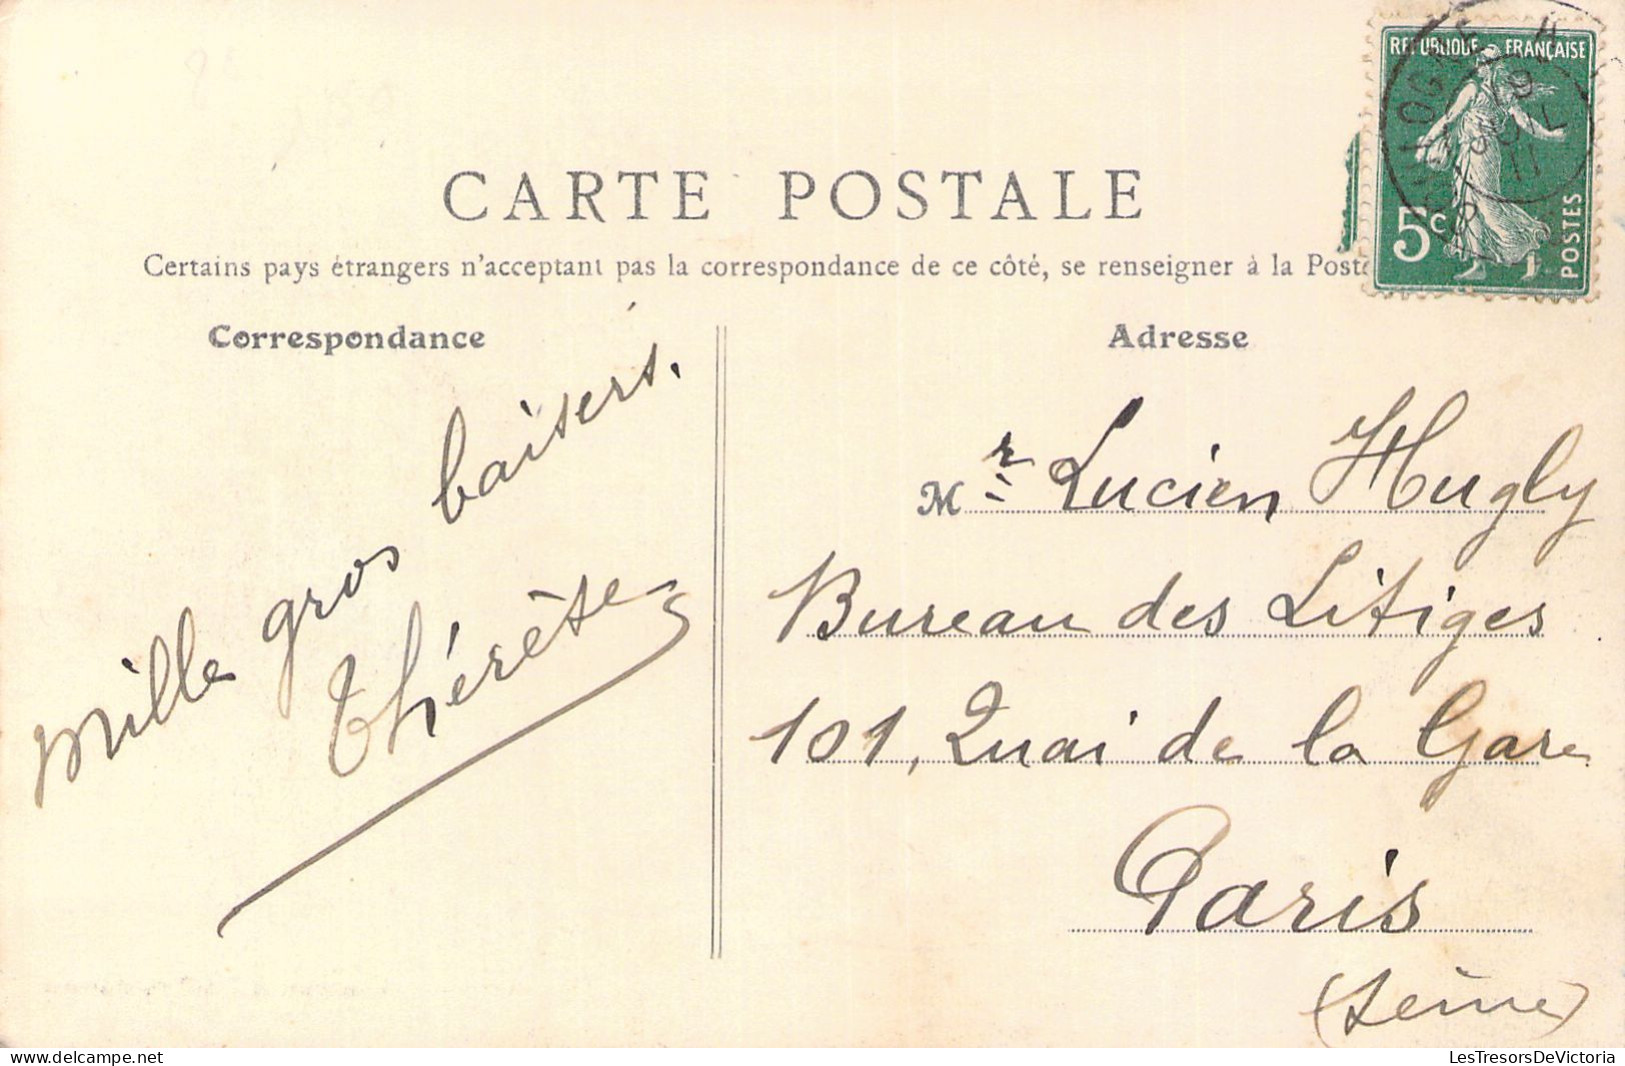 CARTE POSTALE
Certains pays étrangers n'acceptant pas la correspondance de ce côté, se renseigner à la Poste
Correspondance
Mille gros baisers.
Thérèse
Adresse
Mr Lucien Hugly
Bureau des Litiges
101, Quai de la Gare
Paris
(Seine)
REPUBLIQUE FRANÇAISE
5c
POSTES
LesTresorsDeVictoria
www.delcampe.net